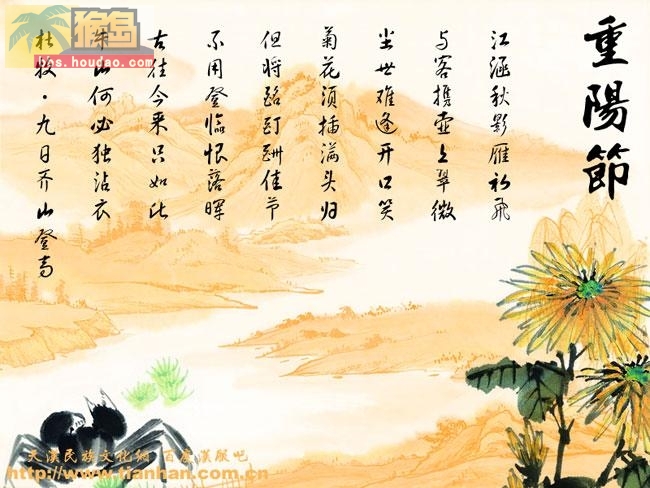 重陽節
江涵秋影雁初飞
与客携壶上翠微
尘世难逢开口笑
菊花须插满头归
但将酩酊酬佳节
不用登临恨落晖
古往今来只如此
牛山何必独沾衣
杜牧·九日齐山登高
猴岛
bbs.houdao.com
天漢民族文化網 百度漢服吧
http://www.tianhan.com.cn